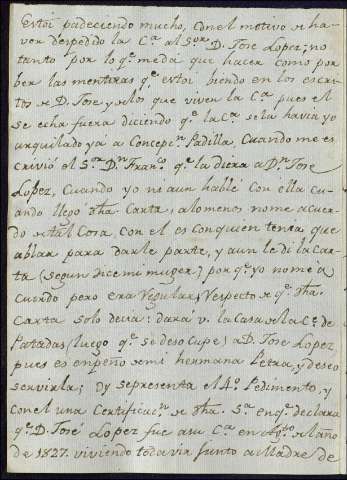 Estoi padeciendo mucho, con el motivo de ha-
ver despedido la Cª al Sor D. Jose Lopez; no
tanto por lo qe me dá que hacer como por
ber las mentiras qe estoi biendo en los escri
tos de D. Jose y de los que viven la Cª pues el
se echa fuera diciendo qe la Cª se la havia yo
arquilado ya a Concepn Padilla, Cuando me es
crivió el Sor Dn Franco qe la diera a Dn Jose
Lopez, Cuando yo ni aun hablé con ella Cu-
ando llego dha Carta, alomenos no me acuer
do de tal Cosa, con el es con quien tenia que
ablar para darle parte, y aun le di la Car
ta (segun dice mi muger) por qe yo no me a
cuerdo pero era Regular, Respecto de qe dha
Carta solo decia: dará v. la Casa de la Ce de
Patadas (luego qe se desocupe) a D. Jose Lopez
pues es enpeño de mi hermana Petra, y deseo
servirla; oy se presenta el 4º Pedimento, y
con el una Certificacn de dha Sª en qe declara
qe D. José Lopez fue a su Cª en Agto del año
de 1827. viviendo todavia junto a Madre de